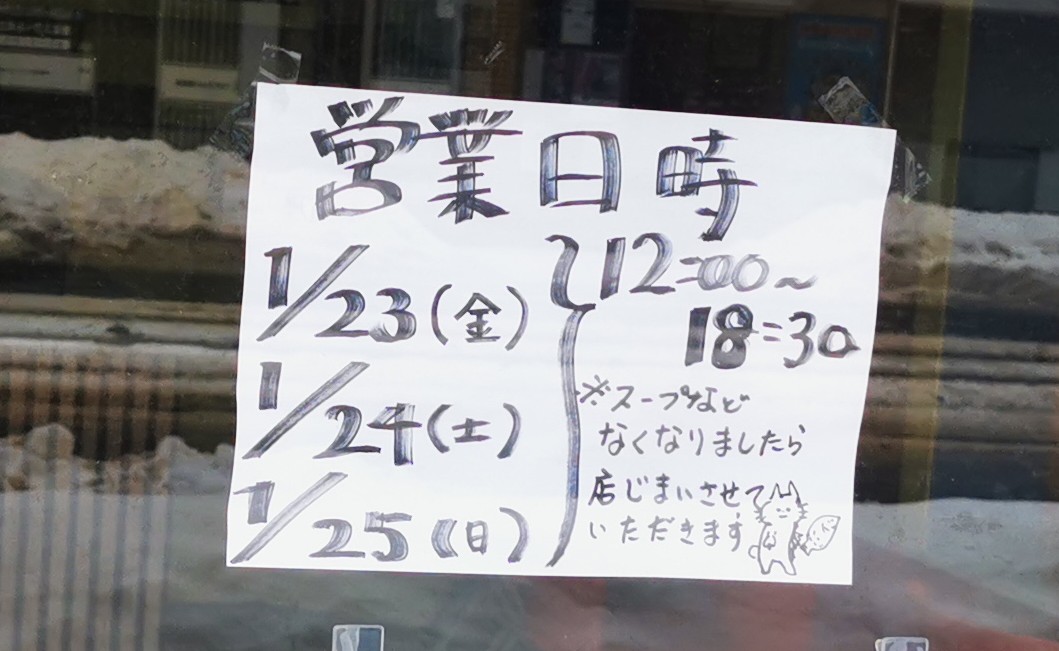 営業日時
1/23(金)
1/24(土)
1/25(日)
12:00~
18:30
※スープなど
なくなりましたら
店じまいさせて
いただきます